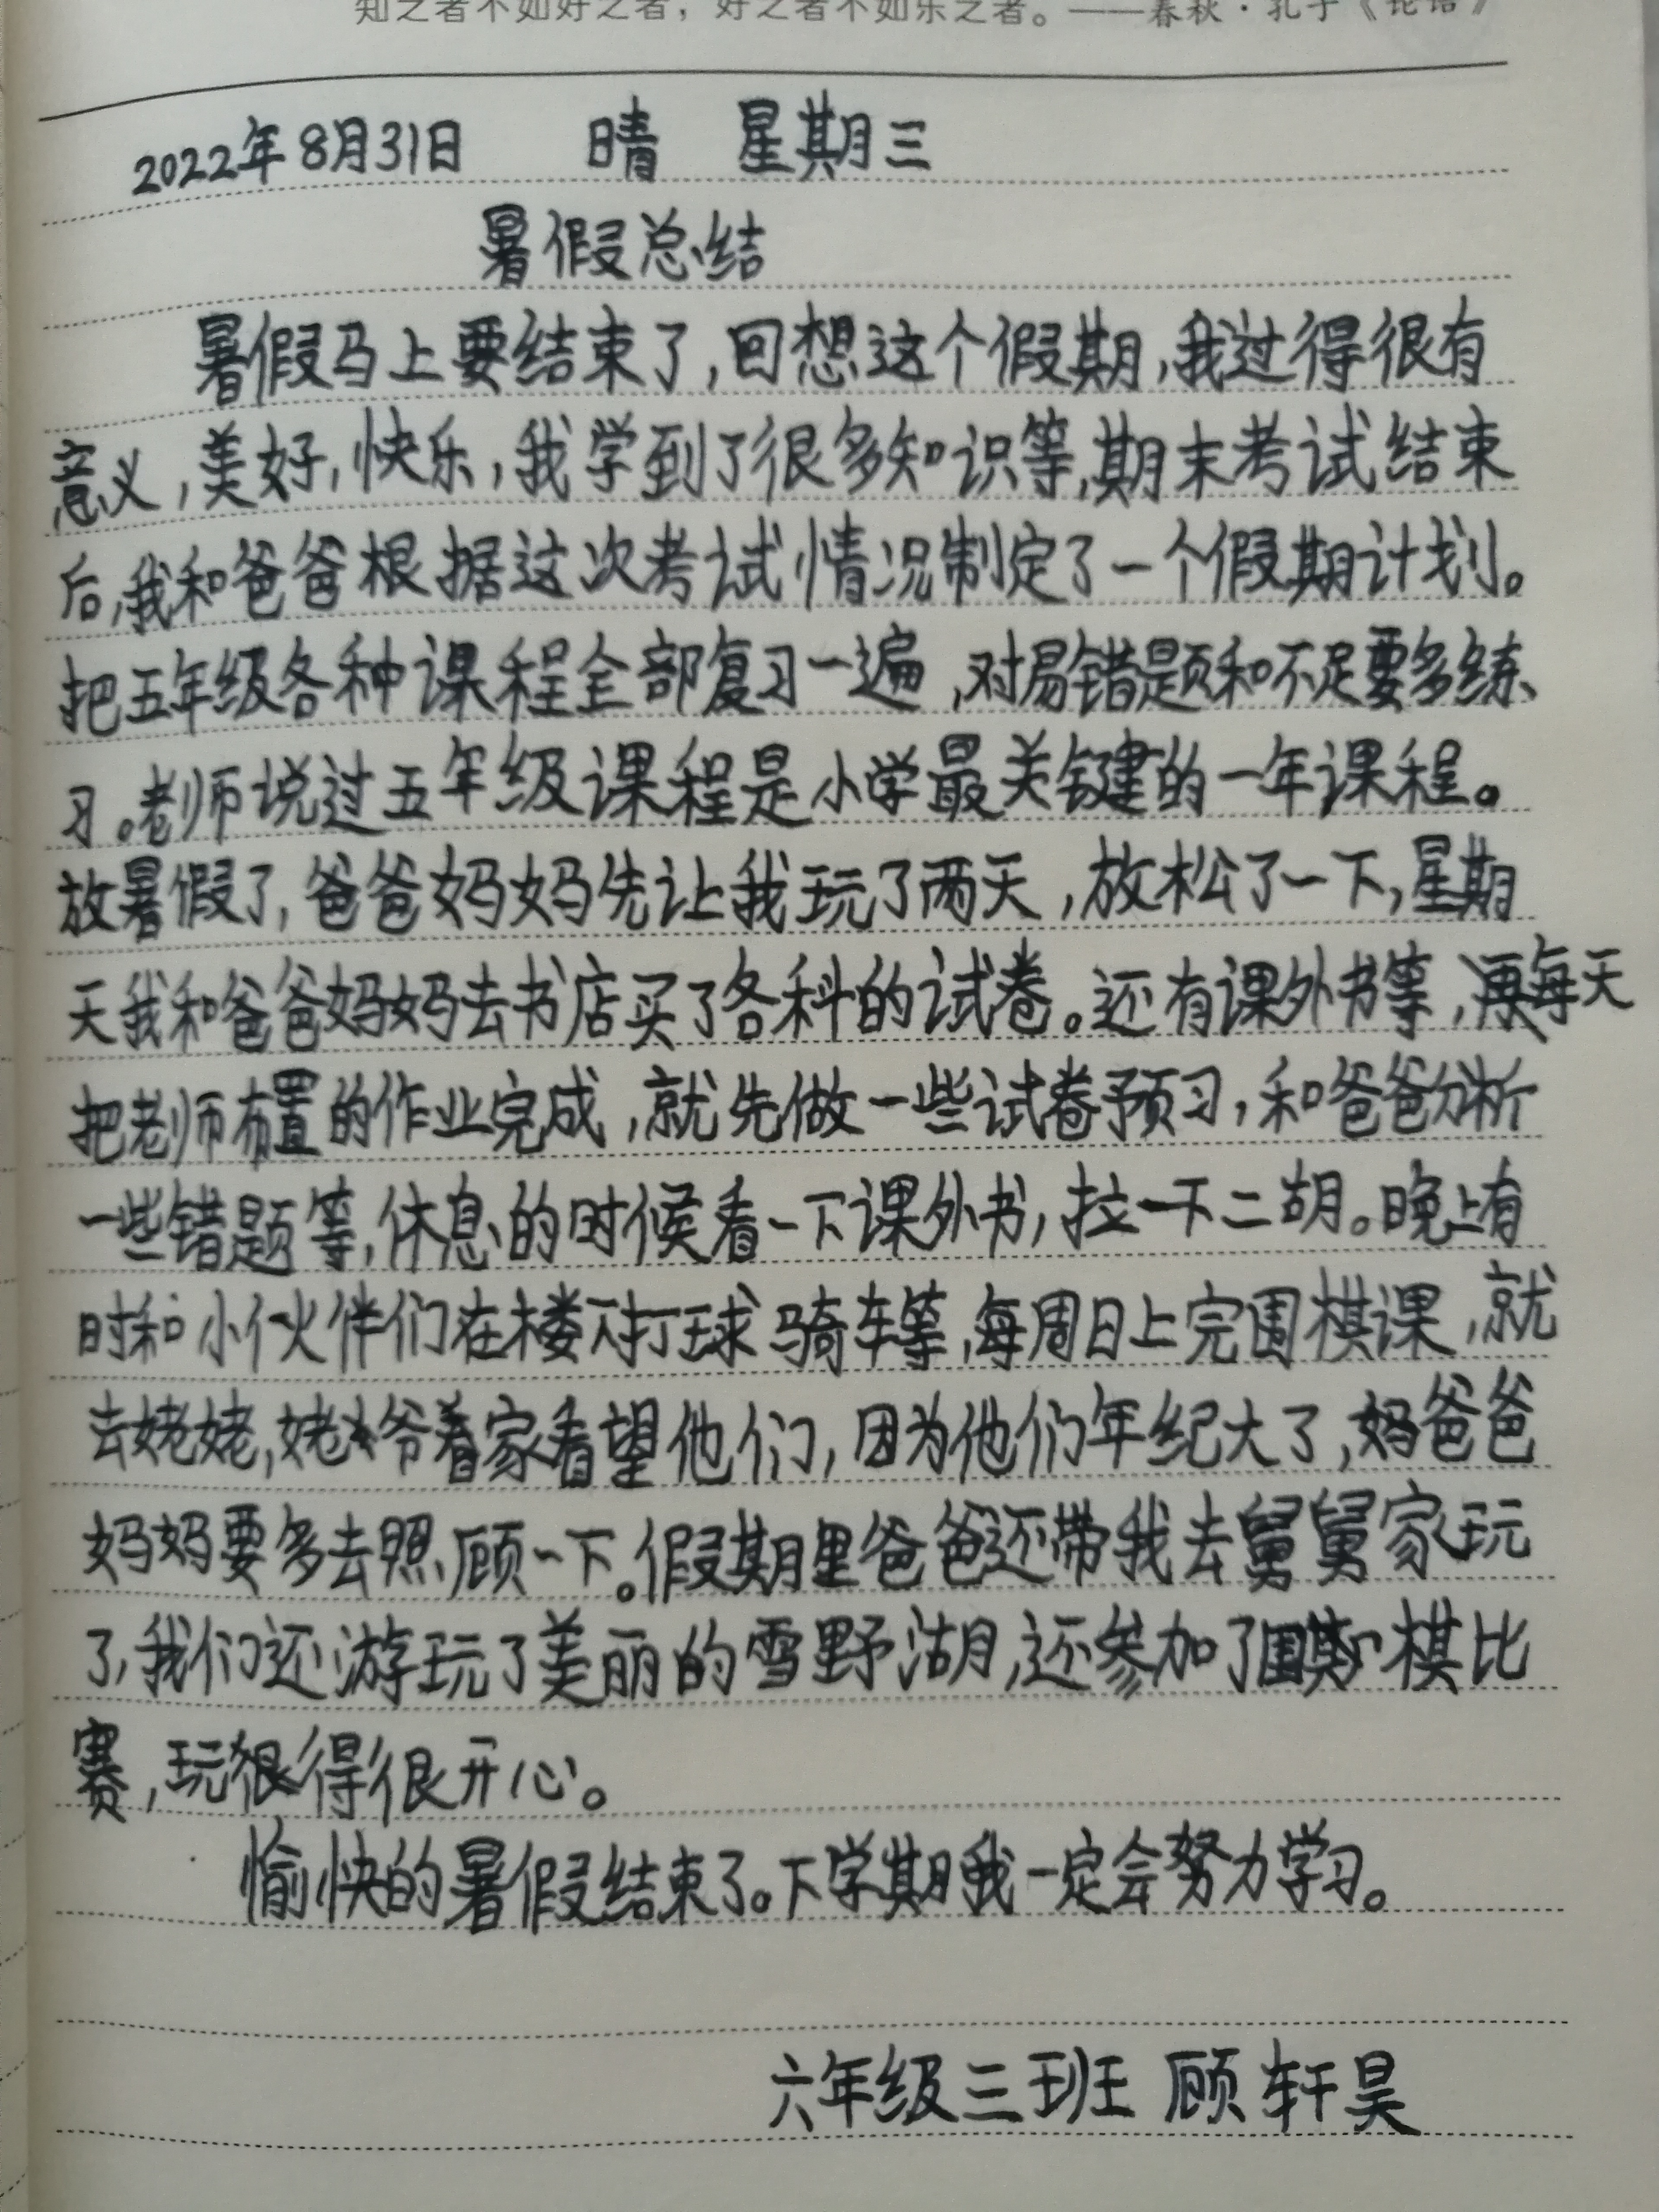 知之者不如好之者，好之者不如乐之者。——春秋·孔子《论语》
2022年8月31日 晴 星期三
暑假总结
暑假马上要结束了，回想这个假期，我过得很有
意义，美好，快乐，我学到了很多知识等，期末考试结束
后，我和爸爸根据这次考试情况制定了一个假期计划。
把五年级各种课程全部复习一遍，对易错题和不足要多练
习。老师说过五年级课程是小学最关键的一年课程。
放暑假了，爸爸妈妈先让我玩了两天，放松了一下，星期
天我和爸爸妈妈去书店买了各科的试卷。还有课外书等，每天
把老师布置的作业完成，就先做一些试卷预习，和爸爸分析
一些错题等，休息的时候看一下课外书，拉一下二胡。晚上有
时和小伙伴们在楼下打球骑车等，每周日上完围棋课，就
去姥姥，姥爷家看望他们，因为他们年纪大了，妈爸爸
妈妈要多去照顾一下。假期里爸爸还带我去舅舅家玩
了，我们还游玩了美丽的雪野湖，还参加了围棋比
赛，玩得很开心。
愉快的暑假结束了。下学期我一定会努力学习。
六年级三班 顾轩昊